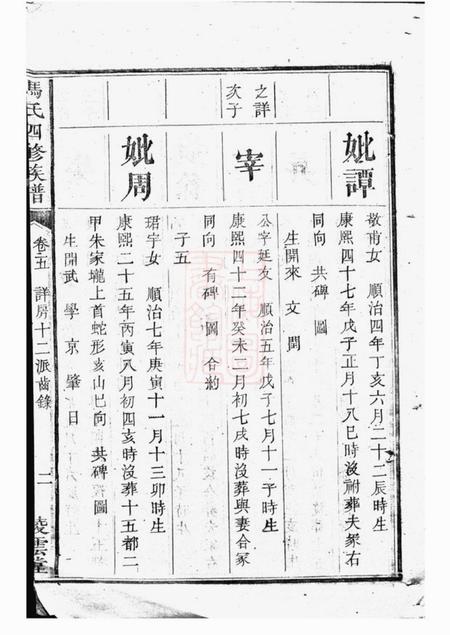 妣譚
敬甫女 順治四年丁亥六月二十二辰時生
康熙四十七年戊子正月十八巳時沒祔葬夫冢右
同向 共碑 圖
生開來 文 閏
之詳
次子
宰
公字廷友 順治五年戊子七月十一子時生
康熙四十二年癸未二月初七戌時沒葬與妻合冢
同向 有碑 圖 合約
子五
妣周
珺宇女 順治七年庚寅十一月十三卯時生
康熙二十五年丙寅八月初四亥時沒葬十五都二
甲朱家壠上首蛇形亥山巳向 共碑 圖
生開武 學 京 肇 日
馮氏四修族譜
卷五 詳房十二派齒錄
二
凌雲堂